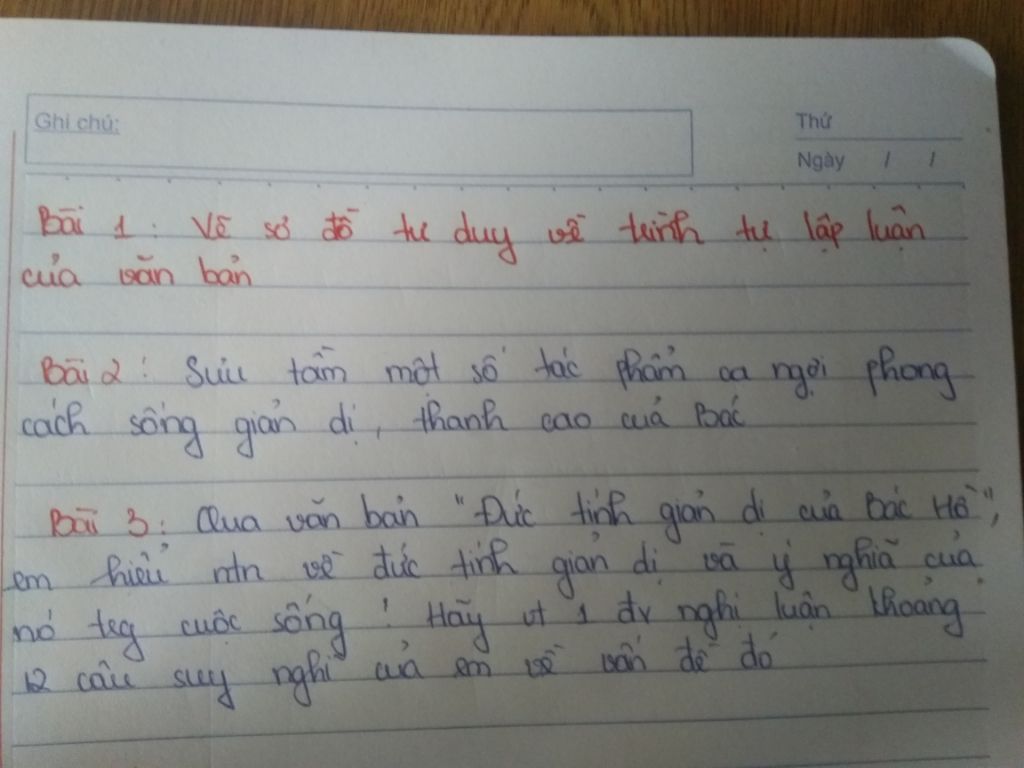 Ghi chú:
Thứ
Ngày / /
Bài 1: Vẽ sơ đồ tư duy về trình tự lập luận
của văn bản
Bài 2: Sưu tầm một số tác phẩm ca ngợi phong
cách sống giản dị, thanh cao của Bác
Bài 3: Qua văn bản "Đức tính giản dị của Bác Hồ",
em hiểu ntn về đức tính giản dị và ý nghĩa của
nó trg cuộc sống! Hãy vt 1 đv nghị luận khoảng
12 câu suy nghĩ của em về vấn đề đó